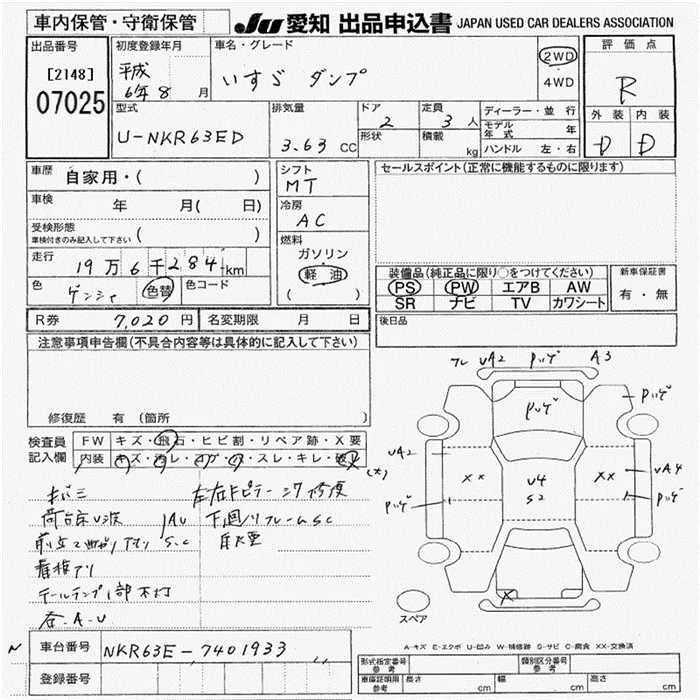 車内保管・守衛保管
JU 愛知 出品申込書 JAPAN USED CAR DEALERS ASSOCIATION
出品番号
[2148]
07025
初度登録年月
平成
6年8月
車名・グレード
いすゞ ダンプ
2WD
4WD
評価点
R
外装 内装
D D
型式
U-NKR63ED
排気量
3.63 CC
ドア
2
形状
定員
3人
積載
kg
ディーラー・並行
モデル年式 年
ハンドル 左・右
車歴 自家用・( )
車検 年 月( 日)
受検形態
車検付きのみ記入して下さい ( )
走行 19万6千284km
色 ゲンシャ 色替 色コード
シフト
MT
冷房
AC
燃料
ガソリン
軽油
( )
セールスポイント(正常に機能するものに限ります)
装備品(純正品に限り○をつけてください)
PS PW エアB AW
SR ナビ TV カワシート
新車保証書
有・無
R券 7,020円 名変期限 月 日
後日品
注意事項申告欄(不具合内容等は具体的に記入して下さい)
修復歴 有 〔箇所 〕
検査員
記入欄
FW キズ・飛石・ヒビ割・リペア跡・X要
内装
スレ・キレ・破レ
キバミ
下廻りフレームSC
テールランプ1部不灯
各A・U
フレ UA2 A3
UA2
XX
U4
S2
XX
UA4
X
スペア
A-キズ E-エクボ U-凹み W-補修跡 S-サビ C-腐食 XX-交換済
車台番号 NKR63E-7401933
登録番号
形式指定番号
参考
類別区分番号
参考
車庫証明用
参考
長さ cm 幅 cm 高さ cm